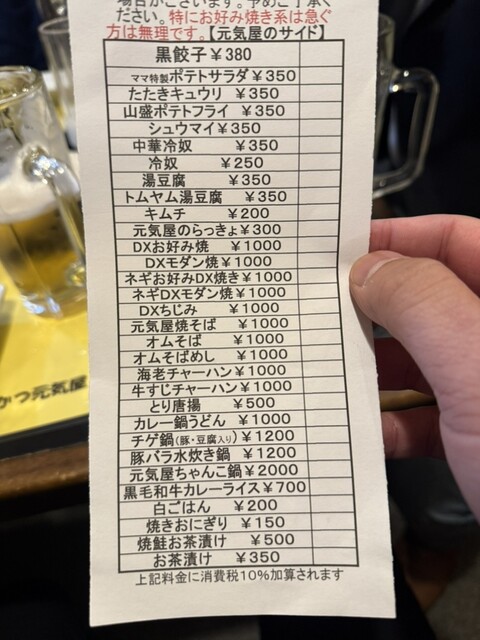 場合がございます。予めご了承く
ださい。特にお好み焼き系は急ぐ
方は無理です。【元気屋のサイド】
黒餃子￥380
ママ特製ポテトサラダ￥350
たたきキュウリ ￥350
山盛ポテトフライ ￥350
シュウマイ￥350
中華冷奴 ￥350
冷奴 ￥250
湯豆腐 ￥350
トムヤム湯豆腐 ￥350
キムチ ￥200
元気屋のらっきょ￥300
DXお好み焼 ￥1000
DXモダン焼￥1000
ネギお好みDX焼き￥1000
ネギDXモダン焼￥1000
DXちじみ ￥1000
元気屋焼そば ￥1000
オムそば ￥1000
オムそばめし ￥1000
海老チャーハン￥1000
牛すじチャーハン￥1000
とり唐揚 ￥500
カレー鍋うどん ￥1000
チゲ鍋(豚・豆腐入り)￥1200
豚バラ水炊き鍋 ￥1200
元気屋ちゃんこ鍋￥2000
黒毛和牛カレーライス￥700
白ごはん ￥200
焼きおにぎり ￥150
焼鮭お茶漬け ￥500
お茶漬け ￥350
上記料金に消費税10%加算されます
かつ元気屋